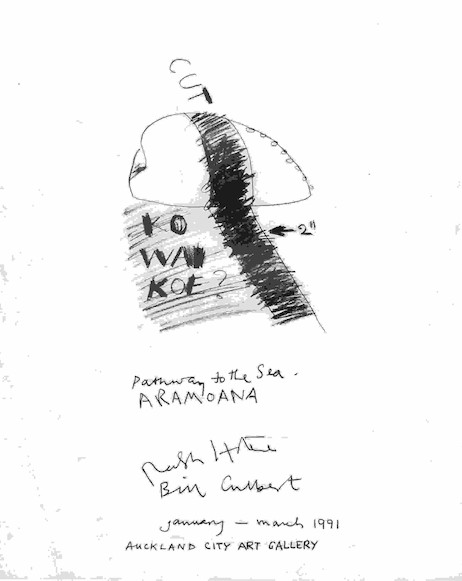 CUT
KO
WAI
KOE?
2"
Pathway to the Sea -
ARAMOANA
Ralph Hotere
Bill Culbert
january - march 1991
AUCKLAND CITY ART GALLERY